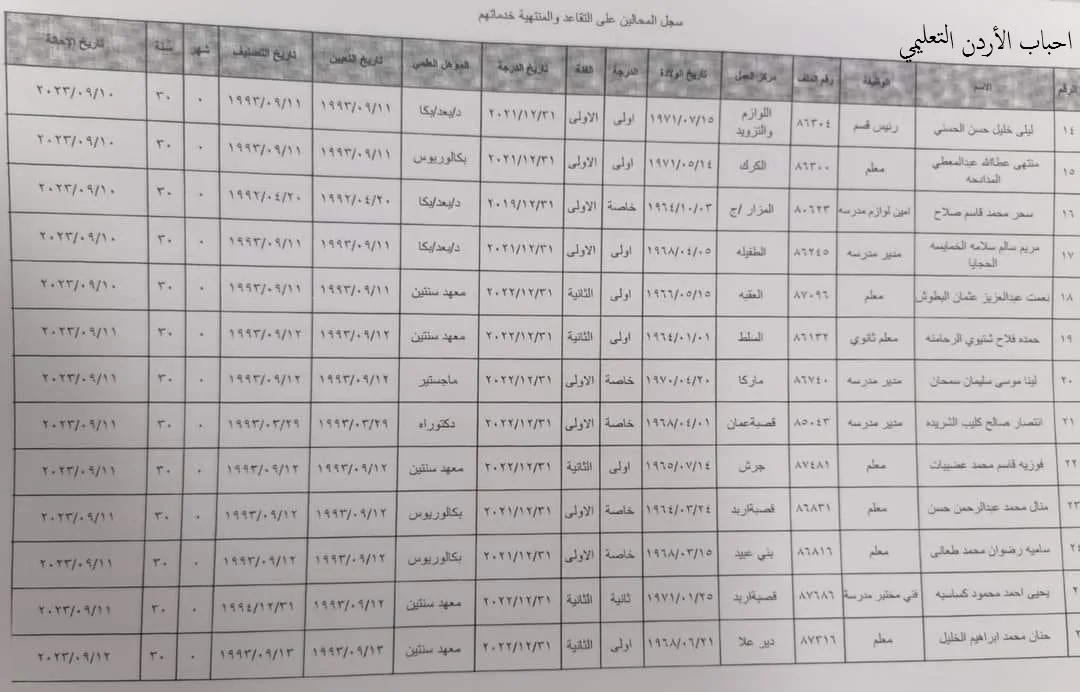 سجل المحالين على التقاعد والمنتهية خدماتهم
احباب الأردن التعليمي
الرقم الاسم الوظيفة رقم الملف مركز العمل تاريخ الولادة الدرجة الفئة تاريخ الدرجة المؤهل العلمي تاريخ التعيين تاريخ التصنيف شهر سنة تاريخ الإحالة
١٤ ليلى خليل حسن الحسني رئيس قسم ٨٦٣٠٤ اللوازم والتزويد ١٩٧١/٠٧/١٥ اولى الاولى ٢٠٢١/١٢/٣١ د/بعد/بكا ١٩٩٣/٠٩/١١ ١٩٩٣/٠٩/١١ ٠ ٣٠ ٢٠٢٣/٠٩/١٠
١٥ منتهى عطاالله عبدالمعطي المدانحه معلم ٨٦٣٠٠ الكرك ١٩٧١/٠٥/١٤ اولى الاولى ٢٠٢١/١٢/٣١ بكالوريوس ١٩٩٣/٠٩/١١ ١٩٩٣/٠٩/١١ ٠ ٣٠ ٢٠٢٣/٠٩/١٠
١٦ سحر محمد قاسم صلاح امين لوازم مدرسه ٨٠٦٢٣ المزار /ج ١٩٦٤/١٠/٠٣ خاصة الاولى ٢٠١٩/١٢/٣١ د/بعد/بكا ١٩٩٢/٠٤/٢٠ ١٩٩٢/٠٤/٢٠ ٠ ٣٠ ٢٠٢٣/٠٩/١٠
١٧ مريم سالم سلامه الخمايسه الحجايا مدير مدرسه ٨٦٢٤٥ الطفيله ١٩٦٨/٠٤/٠٥ اولى الاولى ٢٠٢١/١٢/٣١ د/بعد/بكا ١٩٩٣/٠٩/١١ ١٩٩٣/٠٩/١١ ٠ ٣٠ ٢٠٢٣/٠٩/١٠
١٨ نعمت عبدالعزيز عثمان البطوش معلم ٨٧٠٩٦ العقبه ١٩٦٦/٠٥/١٥ اولى الثانية ٢٠٢٢/١٢/٣١ معهد سنتين ١٩٩٣/٠٩/١١ ١٩٩٣/٠٩/١١ ٠ ٣٠ ٢٠٢٣/٠٩/١٠
١٩ حمده فلاح شتيوي الرحامنه معلم ثانوي ٨٦١٣٢ السلط ١٩٦٤/٠١/٠١ اولى الثانية ٢٠٢٢/١٢/٣١ معهد سنتين ١٩٩٣/٠٩/١٢ ١٩٩٣/٠٩/١٢ ٠ ٣٠ ٢٠٢٣/٠٩/١١
٢٠ لينا موسى سليمان سمحان مدير مدرسه ٨٦٧٤٠ ماركا ١٩٧٠/٠٤/٢٠ خاصة الاولى ٢٠٢٢/١٢/٣١ ماجستير ١٩٩٣/٠٩/١٢ ١٩٩٣/٠٩/١٢ ٠ ٣٠ ٢٠٢٣/٠٩/١١
٢١ انتصار صالح كليب الشريده مدير مدرسه ٨٥٠٤٣ قصبةعمان ١٩٦٨/٠٤/٠١ خاصة الاولى ٢٠٢٢/١٢/٣١ دكتوراه ١٩٩٣/٠٣/٢٩ ١٩٩٣/٠٣/٢٩ ٠ ٣٠ ٢٠٢٣/٠٩/١١
٢٢ فوزيه قاسم محمد عضيبات معلم ٨٧٤٨١ جرش ١٩٦٥/٠٧/١٤ اولى الثانية ٢٠٢٢/١٢/٣١ معهد سنتين ١٩٩٣/٠٩/١٢ ١٩٩٣/٠٩/١٢ ٠ ٣٠ ٢٠٢٣/٠٩/١١
٢٣ منال محمد عبدالرحمن حسن معلم ٨٦٨٣١ قصبةاربد ١٩٦٤/٠٣/٢٤ خاصة الاولى ٢٠٢١/١٢/٣١ بكالوريوس ١٩٩٣/٠٩/١٢ ١٩٩٣/٠٩/١٢ ٠ ٣٠ ٢٠٢٣/٠٩/١١
٢٤ ساميه رضوان محمد طعاني معلم ٨٦٨١٦ بني عبيد ١٩٦٨/٠٣/١٥ خاصة الاولى ٢٠٢١/١٢/٣١ بكالوريوس ١٩٩٣/٠٩/١٢ ١٩٩٣/٠٩/١٢ ٠ ٣٠ ٢٠٢٣/٠٩/١١
٢ يحيى احمد محمود كساسبه فني مختبر مدرسة ٨٧٦٨٦ قصبةاربد ١٩٧١/٠١/٢٥ ثانية الثانية ٢٠٢٢/١٢/٣١ معهد سنتين ١٩٩٣/٠٩/١٢ ١٩٩٤/١٢/٣١ ٠ ٣٠ ٢٠٢٣/٠٩/١١
٢ حنان محمد ابراهيم الخليل معلم ٨٧٣١٦ دير علا ١٩٦٨/٠٦/٢١ اولى الثانية ٢٠٢٢/١٢/٣١ معهد سنتين ١٩٩٣/٠٩/١٣ ١٩٩٣/٠٩/١٣ ٠ ٣٠ ٢٠٢٣/٠٩/١٢